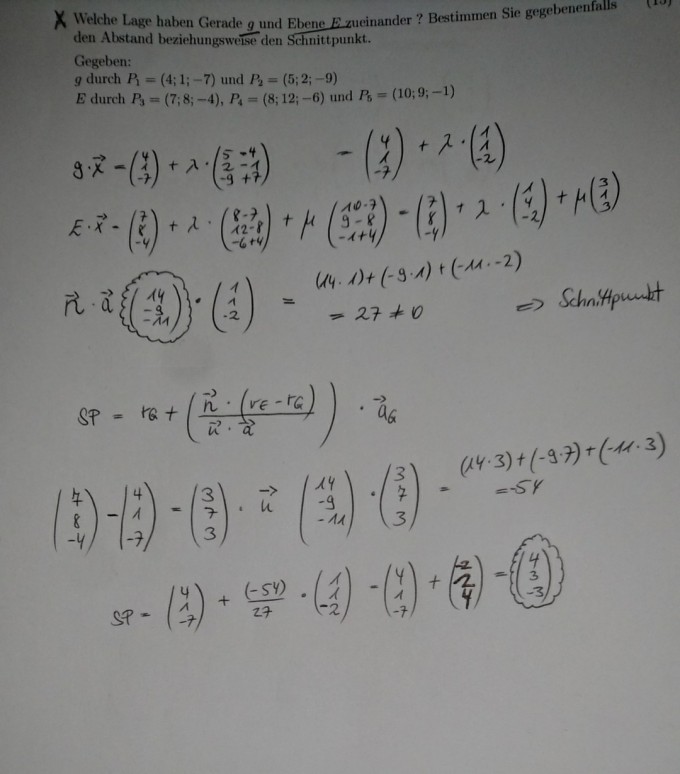 X Welche Lage haben Gerade g und Ebene E zueinander ? Bestimmen Sie gegebenenfalls
den Abstand beziehungsweise den Schnittpunkt.
Gegeben:
g durch P₁ = (4; 1; −7) und P₂ = (5; 2; −9)
E durch P₃ = (7; 8; −4), P₄ = (8; 12; −6) und P₅ = (10; 9; −1)
g·x⃗ = (4 1 -7) + λ · (5-4 2-1 -9+7) = (4 1 -7) + λ · (1 1 -2)
E·x⃗ = (7 8 -4) + λ · (8-7 12-8 -6+4) + μ (10-7 9-8 -1+4) = (7 8 -4) + λ · (1 4 -2) + μ (3 1 3)
n⃗ · a⃗ (14 -9 -11) · (1 1 -2) = (14·1)+(-9·1)+(-11·-2)
= 27 ≠ 0 ⇒ Schnittpunkt
SP = rG + (n⃗ · (rE - rG) / n⃗ · a⃗) · a⃗G
(7 8 -4) - (4 1 -7) = (3 7 3) · n⃗ (14 -9 -11) · (3 7 3) = (14·3)+(-9·7)+(-11·3)
= -54
SP = (4 1 -7) + (-54)/27 · (1 1 -2) = (4 1 -7) + (-2 2 4) = (4 3 -3)